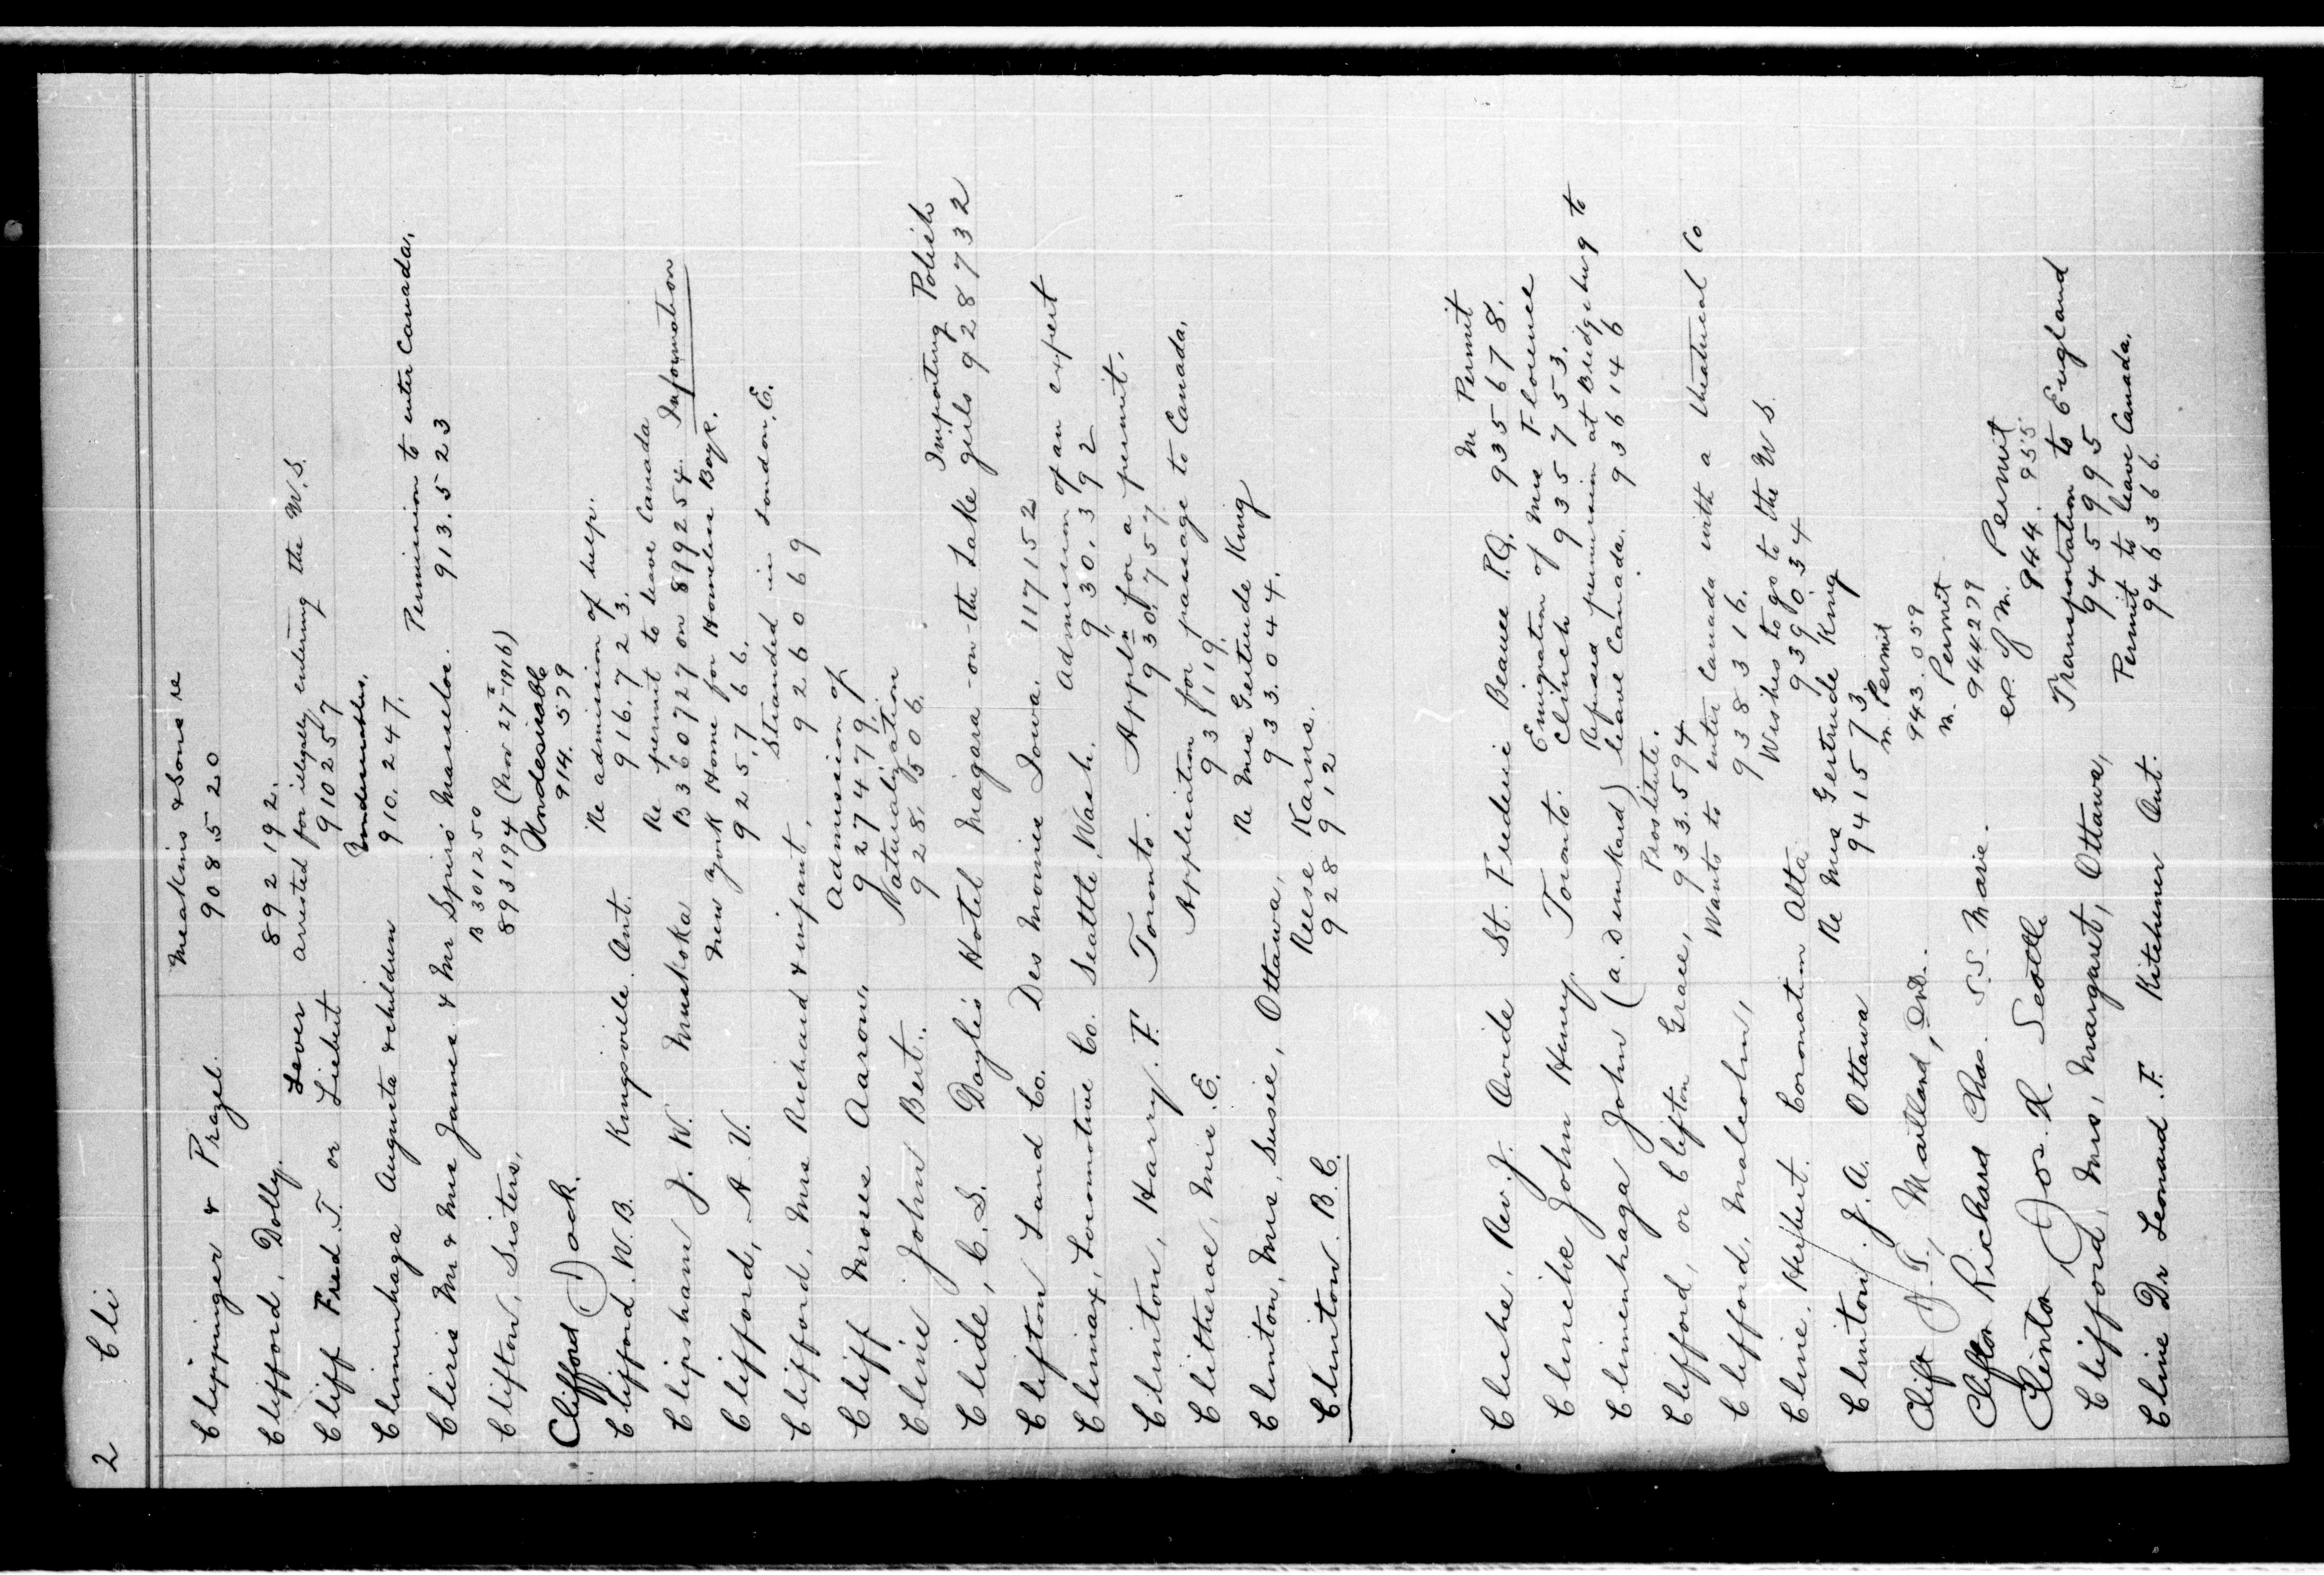 2 Cli
Meakins & Sons re
Clippinger & Prazel. 908520
Clifford, Dolly. 892192.
Lever arrested for illegally entering the U.S.
Cliff Fred. T. or Liebert 910257
Undesirables.
Climenhaga Augusta & children 910.247.
Permission to enter Canada.
Cliris Mr & Mrs James & Mr Spiro 913.523
B 301250
Clifton, Sisters, 893194 (Nov 27th 1916)
Undesirable
Clifford Jack. 914.579
Re admission of help.
Clifford. W. B. Kingsville. Ont. 916.723.
Re permit to leave Canada
Clipsham J. W. Muskoka B360727 on 899254. Information
New York Home for Homeless Boys.
Clifford, A V. 925.766.
Stranded in London. E.
Clifford, Mrs Richard & infant. 926069
Admission of
Cliff Moses Aaron. 927479.
Naturalization
Cline John Bert.. 928.506.
Importing Polish
Clide, C. S. Doyle's Hotel Niagara-on-the Lake girls 928732
Clifton Land Co. Des Moines Iowa. 117152
Admission of an expert
Climax, Locomotive Co. Seattle, Wash. 930.392
Appln for a permit.
Clinton, Harry. F. Toronto. 930.757.
Application for passage to Canada.
Clitheroe, Mrs. E. 931119.
Re Mrs Gertrude King
Clinton, Mrs, Susie, Ottawa, 933.044.
Reese Karns.
Clinton. B. C. 928912
M Permit
Cliche, Rev. J. Ovide St. Frederic Beauce P.Q. 935678.
Emigration of Mrs Florence
Clinche John Henry. Toronto. Clinch 935753.
Refused permission at Bridgeburg to
Climenhaga John (a. Drunkard) leave Canada. 936146
Prostitute.
Clifford, or Clifton Grace, 933.594
Wants to enter Canada with a theatrical Co
Clifford, Malcolm, 938316.
Wishes to go to the U S.
Cline. Herbert. Coronation Alta 939034
Re Mrs Gertrude King
Clinton. J. A. Ottawa 941573.
m. Permit
Clift J. T., Maitland, Ont.. 943.059
m. Permit
Clifton Richard Chas. S.S. Marie. 944279
ex. of m. Permit
Clinton Jos R. Seattle 944.955.
Transportation to England
Clifford, Mrs, Margaret, Ottawa, 945995
Permit to leave Canada.
Cline Dr Leonard. F. Kitchener Ont. 946366.